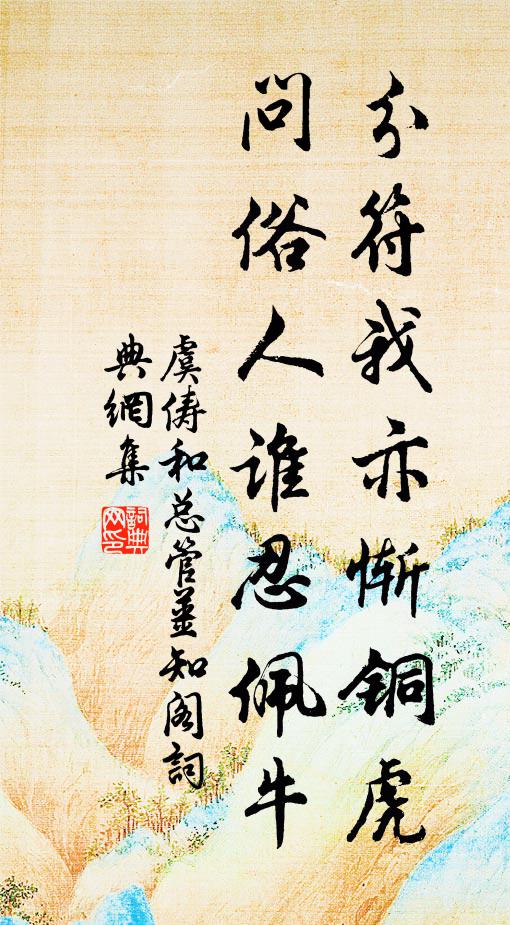 分符我亦惭铜虎
问俗人谁忍佩牛
虞俦和总管姜知阁詞
典網集
詞典
网印